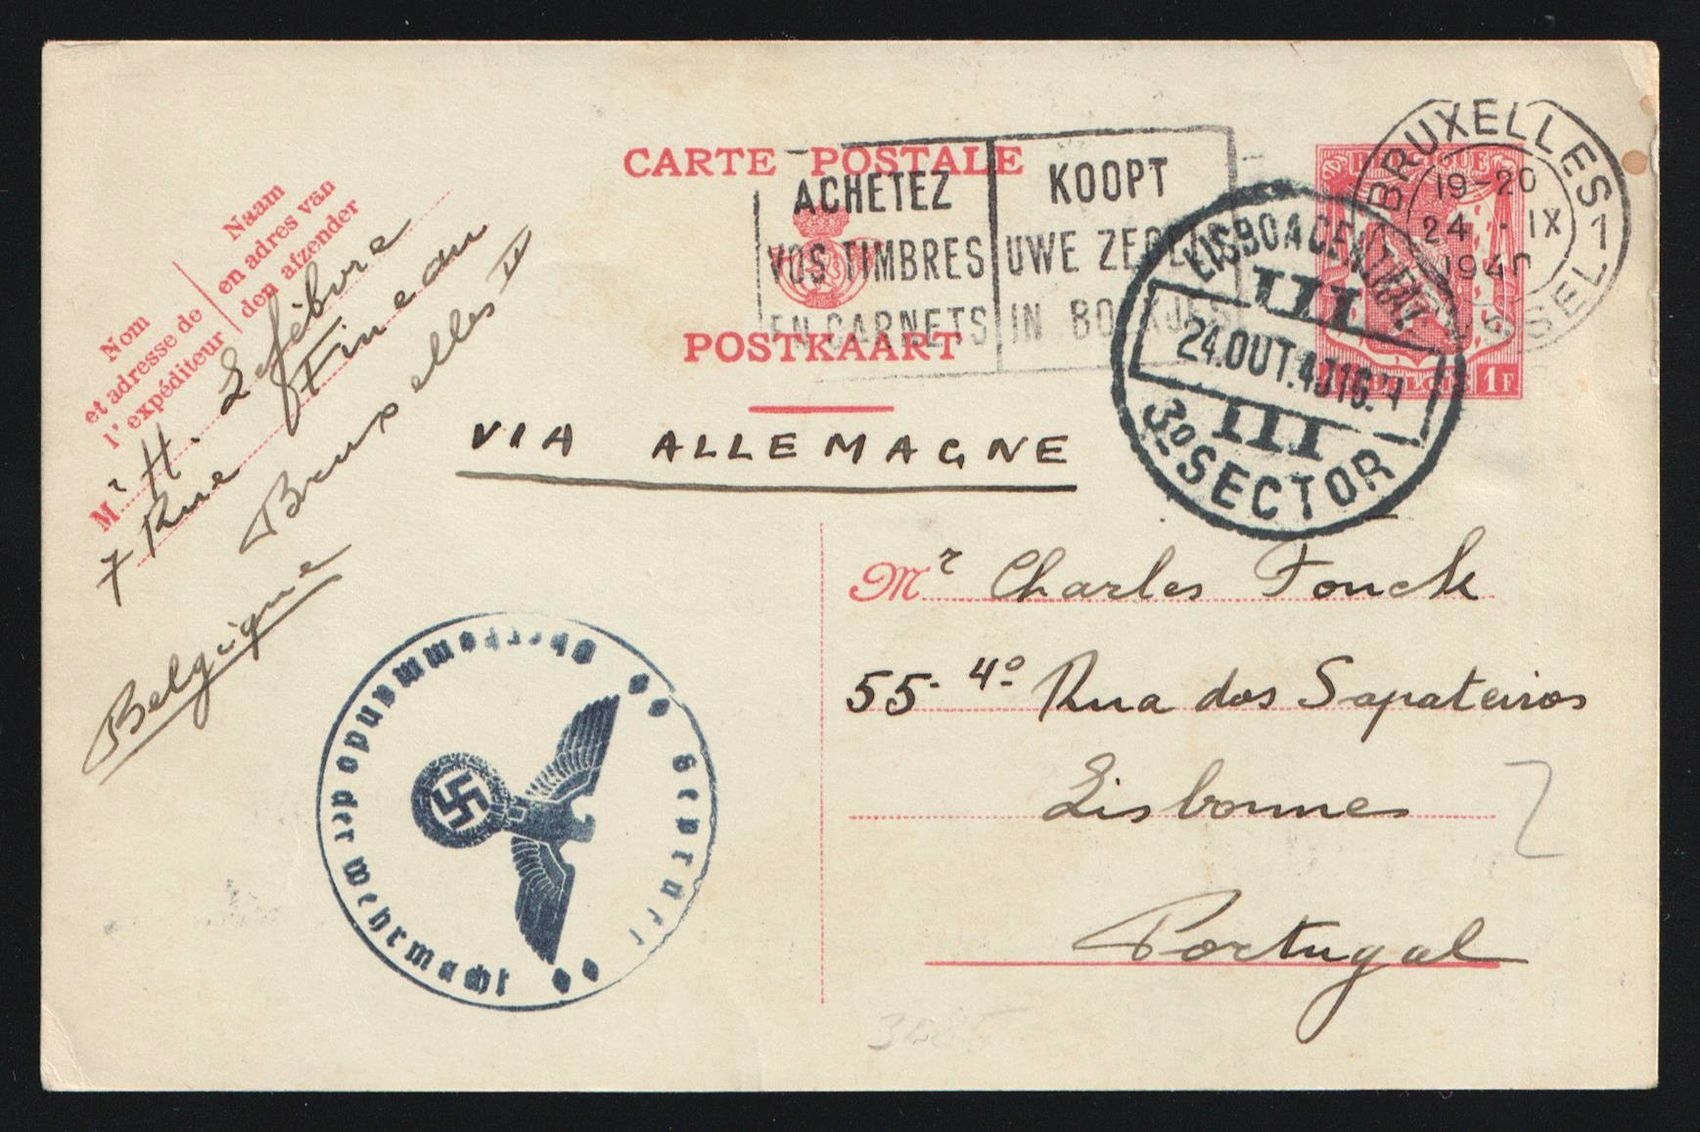 CARTE POSTALE
POSTKAART
ACHETEZ
VOS TIMBRES
EN CARNETS
KOOPT
UWE ZEGELS
IN BOEKJES
BELGIQUE
BELGIE
1F
BRUXELLES 1
19-20
24 · IX
1940
BRUSSEL 1
LISBOA CENTRAL
III
24.OUT.40 16.
III
3º SECTOR
Naam
en adres van
den afzender
Nom
et adresse de
l'expéditeur
Mr H. Lefèbvre
7 Rue Fineau
Bruxelles II
Belgique
VIA ALLEMAGNE
Mr Charles Fonck
55- 4º Rua dos Sapateiros
Lisbonne
Portugal
Oberkommando der Wehrmacht
Geprüft